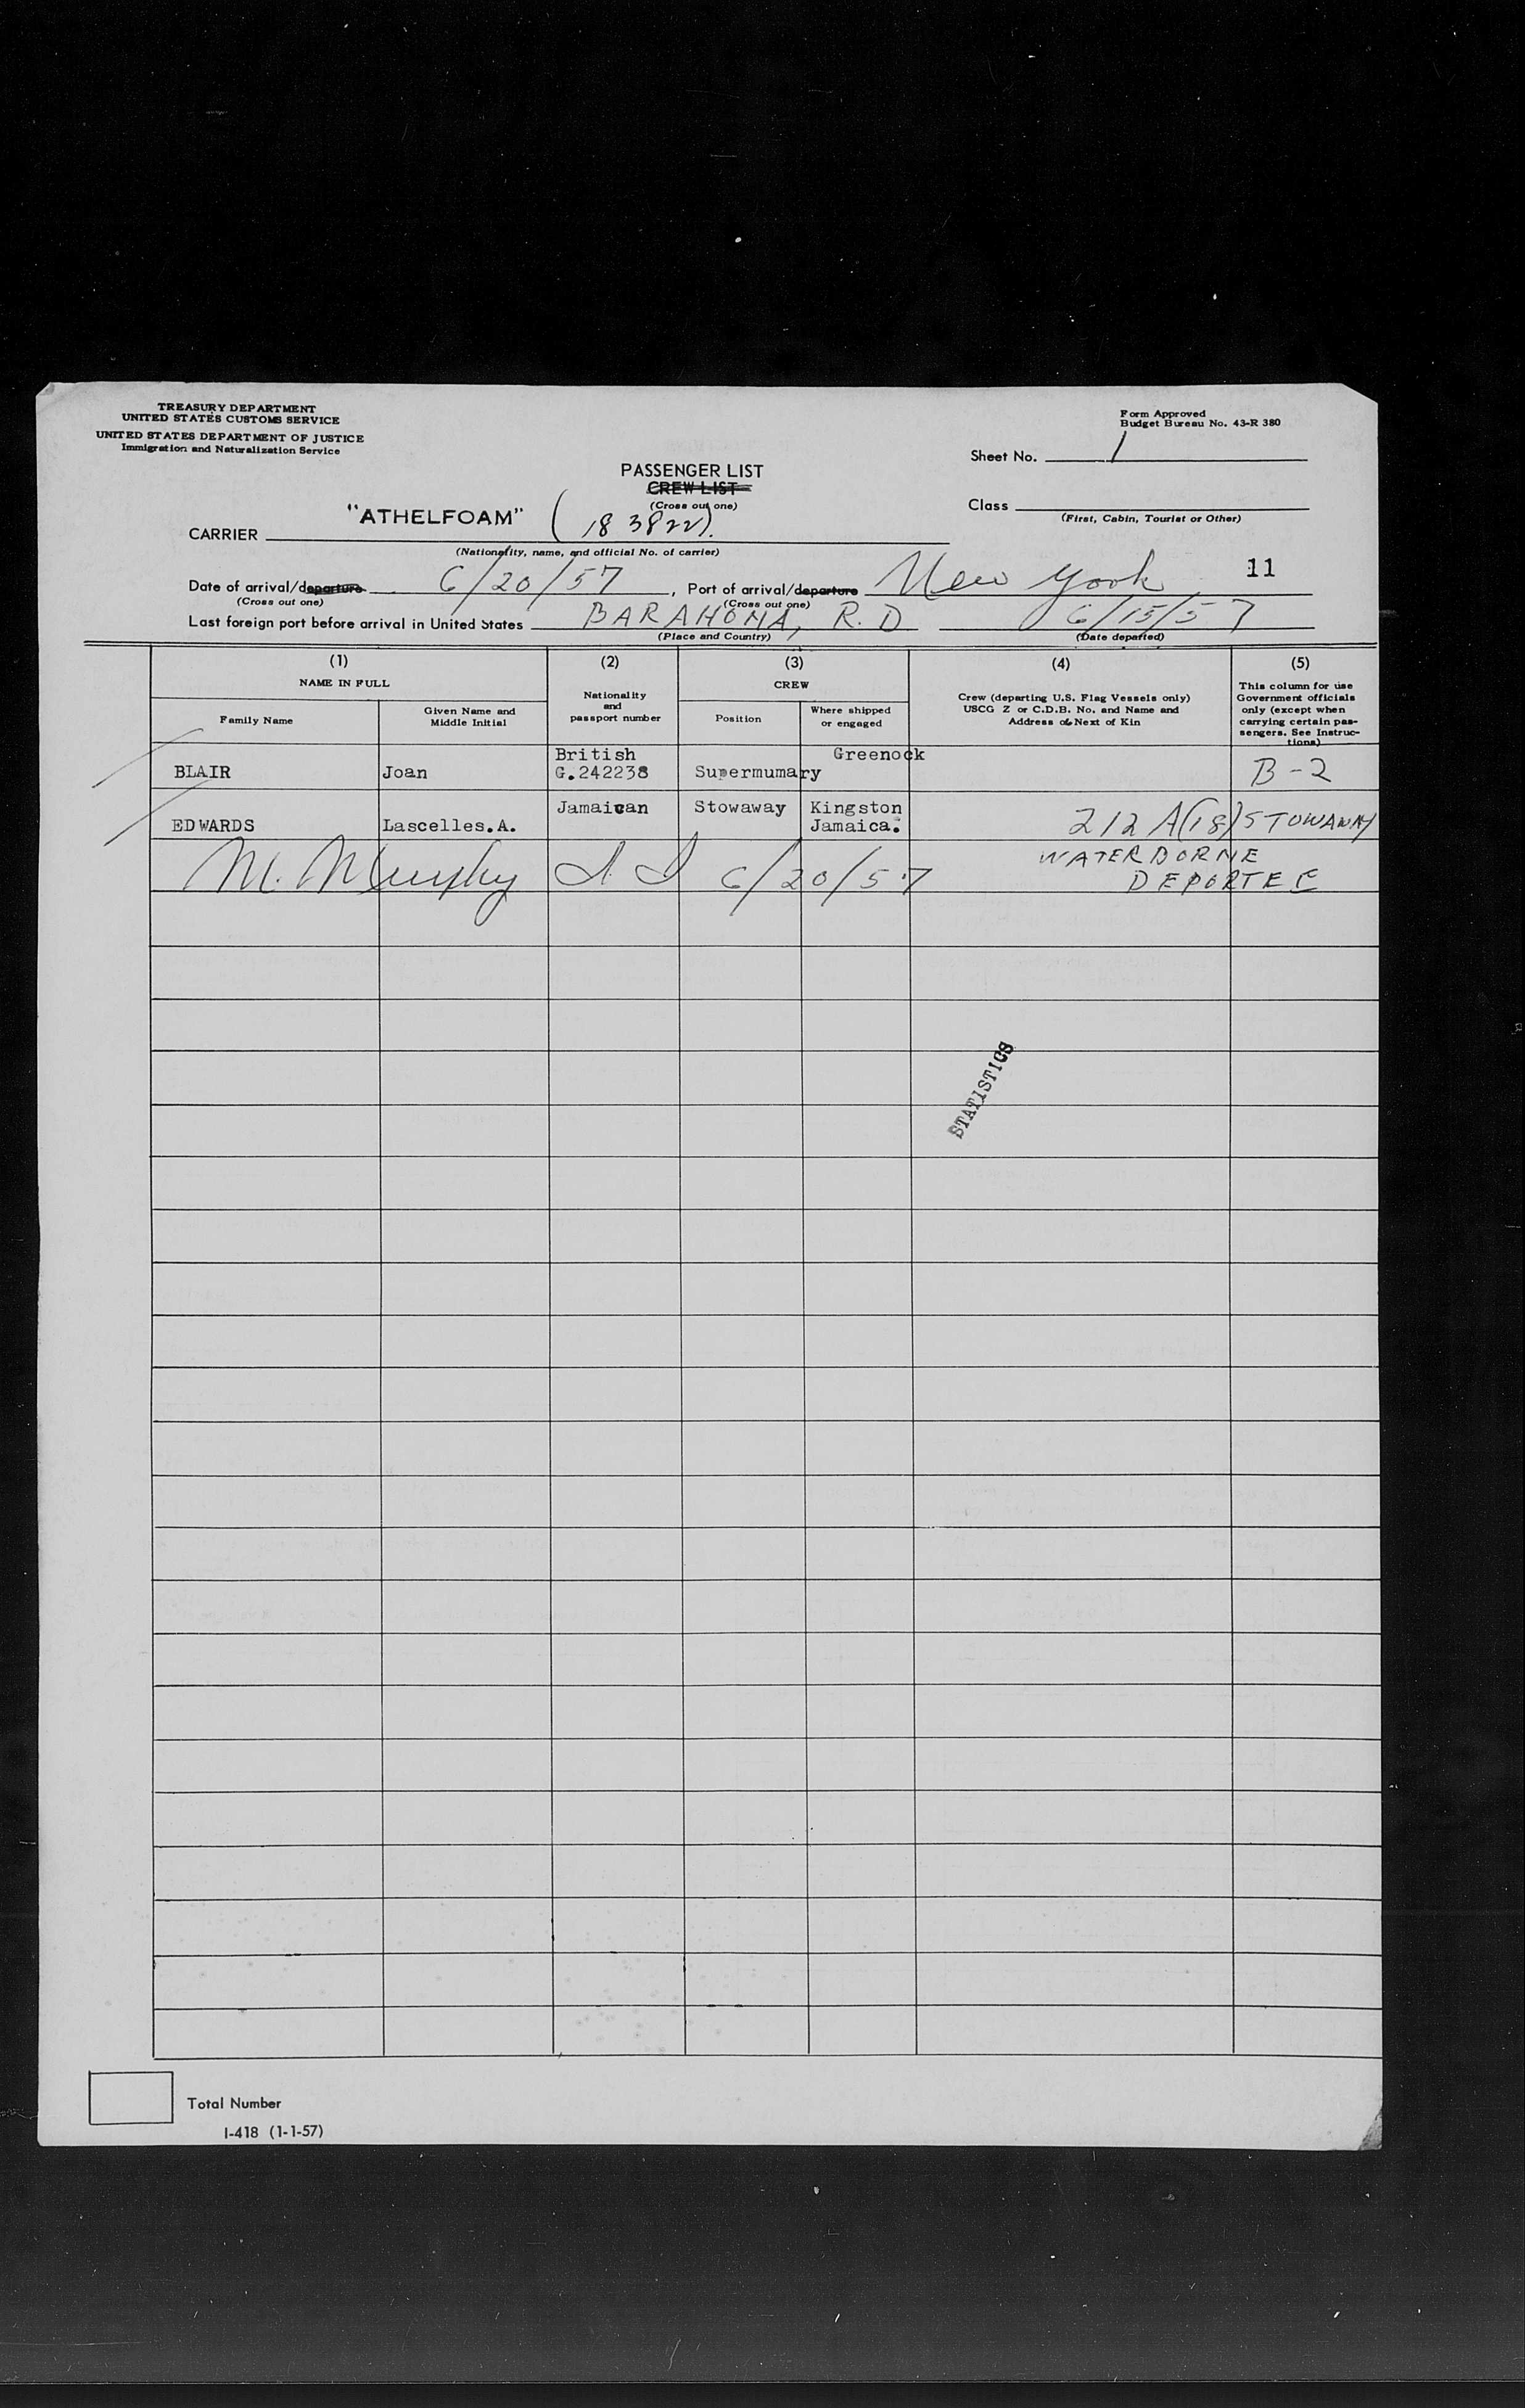 TREASURY DEPARTMENT
UNITED STATES CUSTOMS SERVICE
UNITED STATES DEPARTMENT OF JUSTICE
Immigration and Naturalization Service
Form Approved
Budget Bureau No. 43-R 380
Sheet No. 1
PASSENGER LIST
CREW LIST
(Cross out one)
Class
(First, Cabin, Tourist or Other)
CARRIER "ATHELFOAM" (183822).
(Nationality, name, and official No. of carrier)
11
Date of arrival/departure 6/20/57, Port of arrival/departure New York
(Cross out one) (Cross out one)
Last foreign port before arrival in United States BARAHONA, R.D 6/15/57
(Place and Country) (Date departed)
(1) (2) (3) (4) (5)
NAME IN FULL
Family Name
Given Name and
Middle Initial
Nationality
and
passport number
CREW
Position
Where shipped
or engaged
Crew (departing U.S. Flag Vessels only)
USCG Z or C.D.B. No. and Name and
Address of Next of Kin
This column for use
Government officials
only (except when
carrying certain pas-
sengers. See Instruc-
tions)
British Greenock
BLAIR Joan G.242238 Supermumary B-2
Jamaican Stowaway Kingston
EDWARDS Lascelles.A. Jamaica. 212 A(18) STOWAWAY
WATERBORNE
M. Murphy I I 6/20/57 DEPORTEE
STATISTICS
Total Number
I-418 (1-1-57)